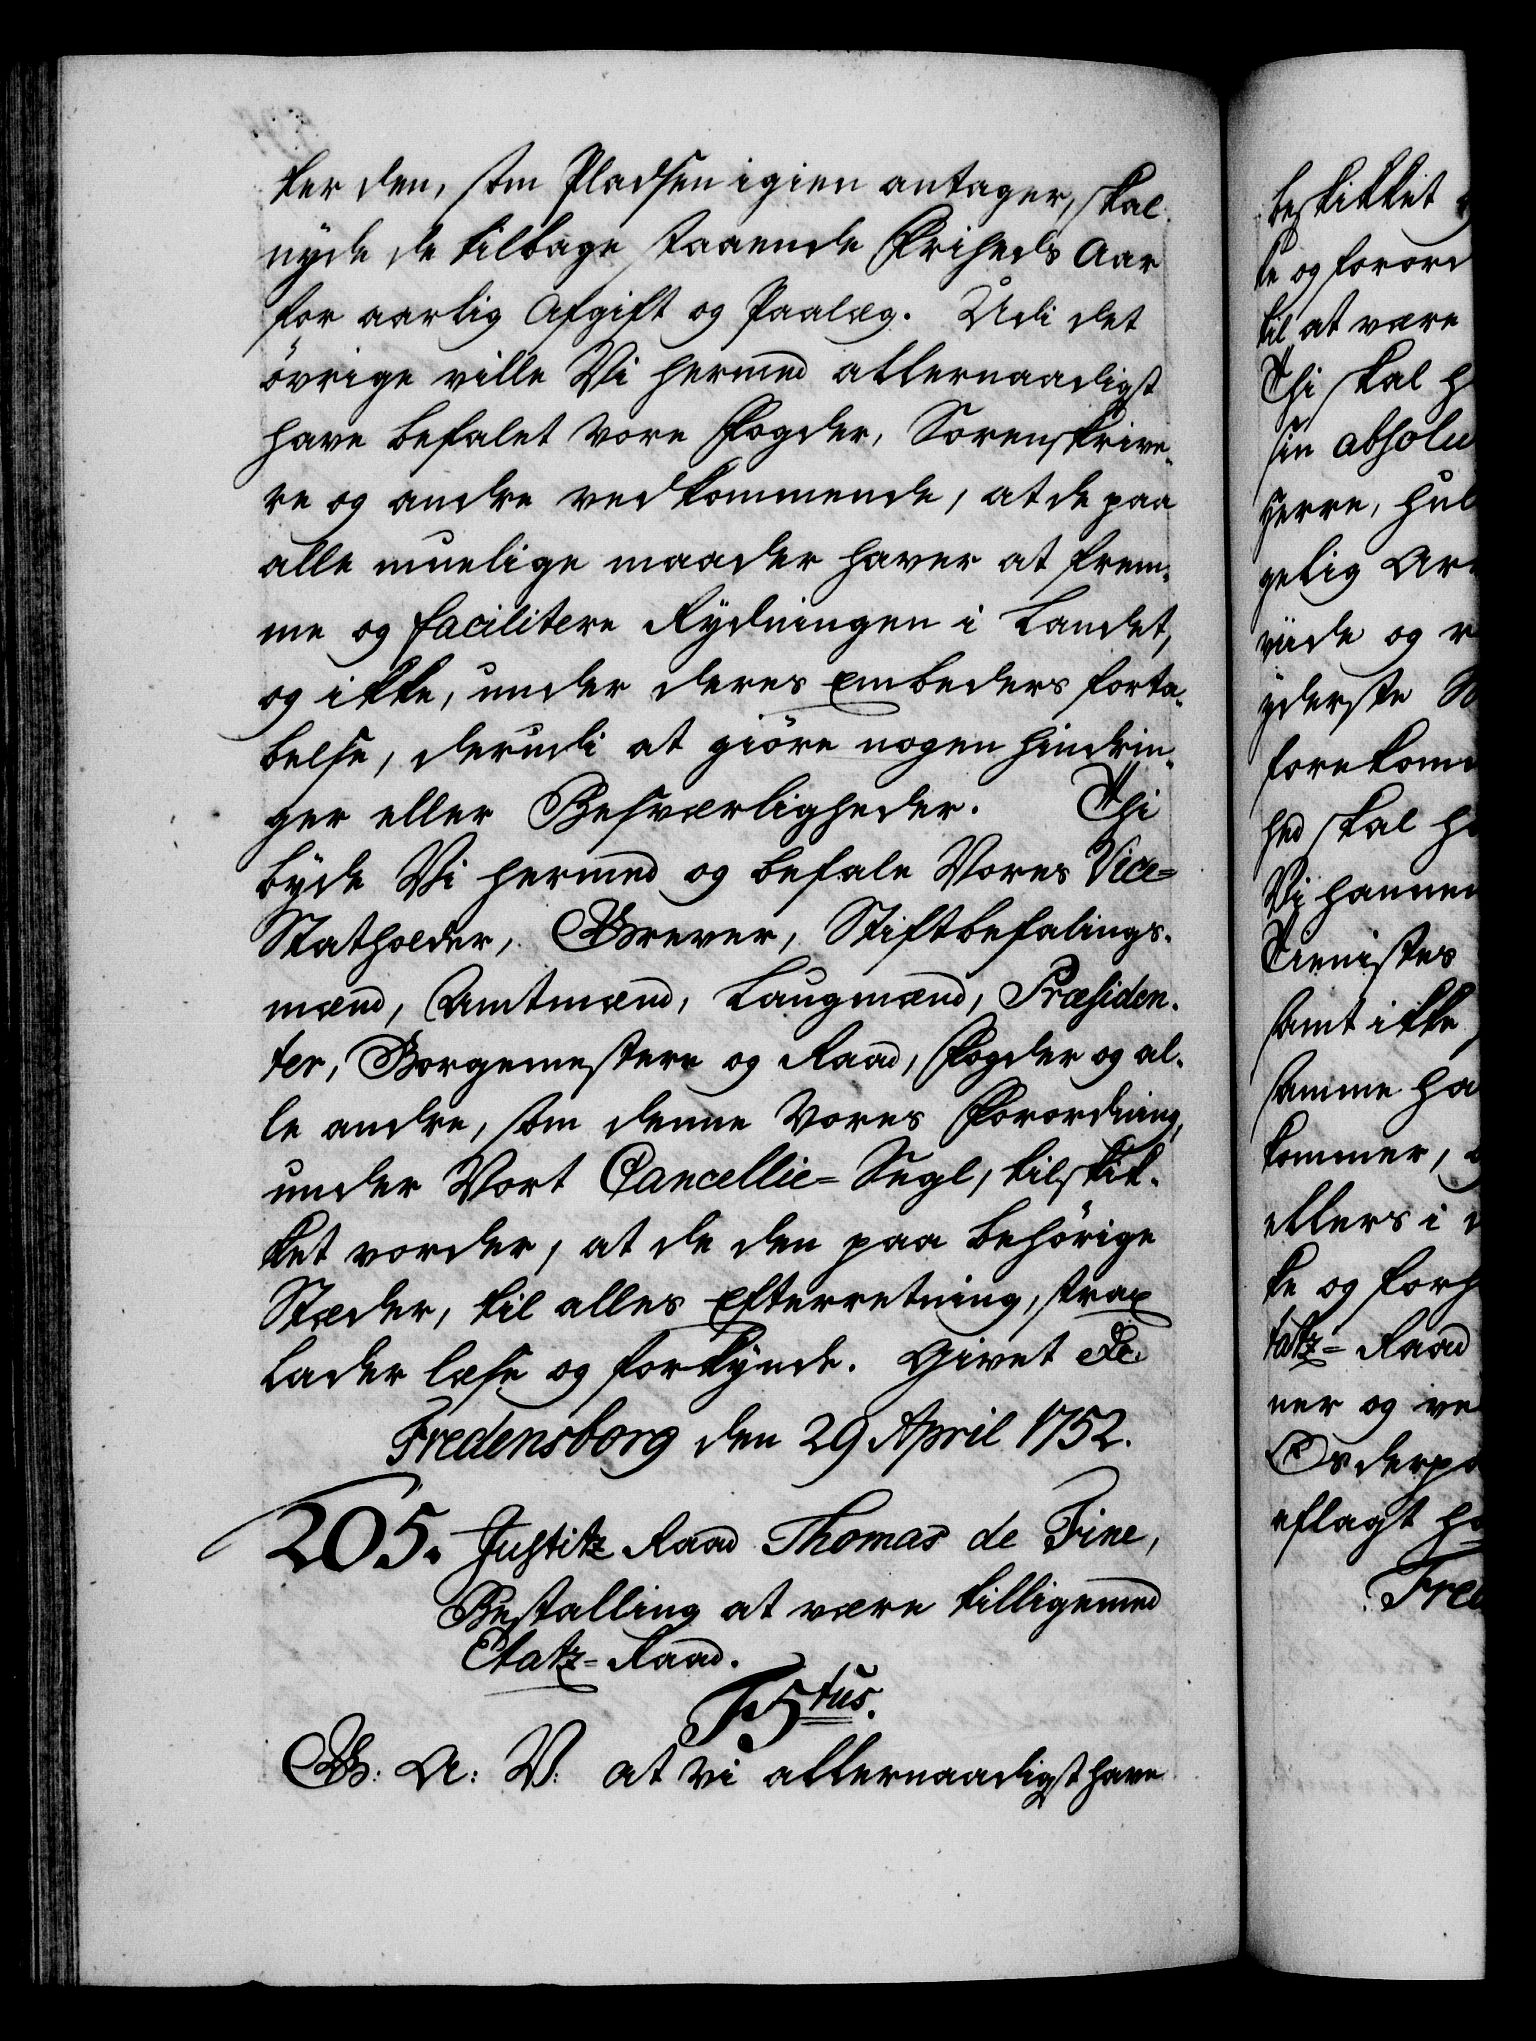 ter den, som Pladsen igien antager, skal
nyde de tilbage staaende Friheds Aar
for aarlig Afgift og Paalæg. Udi det
övrige ville Vi hermed allernaadigst
have befalet Vore Fogder, Sorenskrive-
re og andre vedkommende, at de paa
alle muelige maader haver at frem-
me og facilitere Rydningen i Landet,
og ikke, under deres Embeders forta-
belse, derudi at giöre nogen Hindrin-
ger eller Besværligheder. Thi
byde Vi hermed og befale Vores Vice-
Statholder, Grever, Stiftbefalings-
mænd, Amtmænd, Laugmænd, Præsiden-
ter, Borgemestere og Raad, Fogder og al-
le andre, som denne Vores Forordning,
under Vort Cancellie-Segl, tilskik-
ket vorder, at de den paa behörige
Stæder, til alles Efterretning, strax
lader læse og forkynde. Givet &c.
Fredensborg den 29 April 1752.
205. Justitz Raad Thomas de Fine,
Bestalling at være tilligemed
Etatz-Raad.
F5tus.
G: A: V: at Vi allernaadigst have
beskikket
ke og forord
til at være
Thi skal h
sin absolu
Herre, Hul
gelig Ar
viide og r
yderste
forekom
hed skal h
Vi hannem
Tienistes
samt ikke
samme ha
kommer,
ellers i
ke og forh
tatz-Raad
ner og ve
aflagt ha
Fred